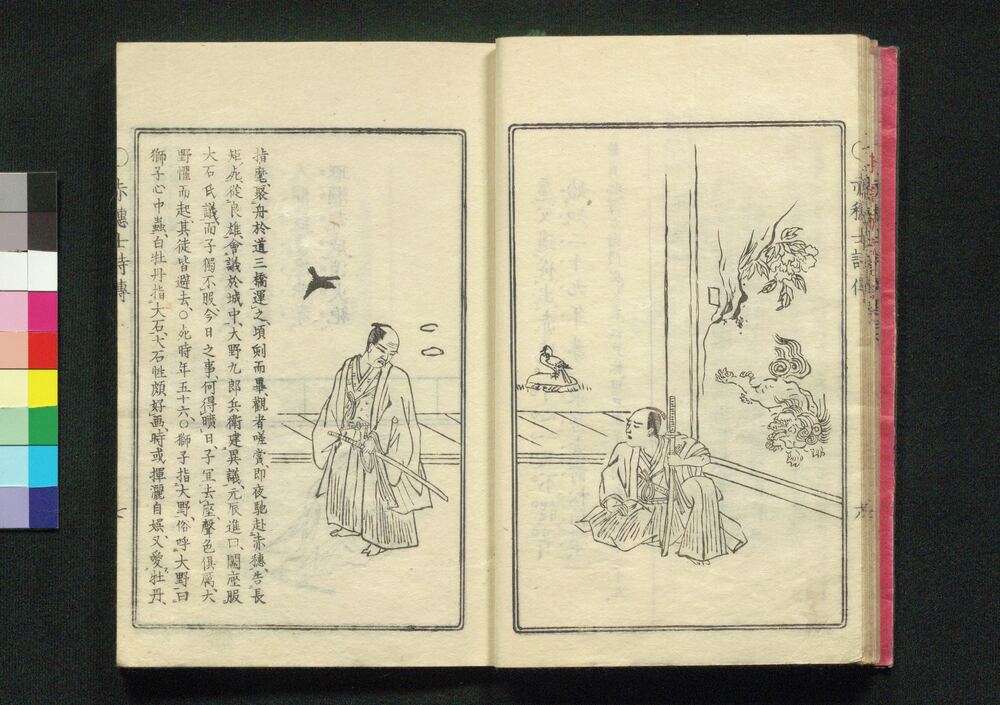 指麾、聚舟於道三橋運之、頃刻而畢、觀者嗟賞、即夜馳赴赤穗、告長
矩死、從良雄會議於城中、大野九郎兵衛建異議、元辰進曰、闔座服
大石氏議、而子獨不服、今日之事、何得曠日、子宜去座、聲色俱厲、大
野懼而起、其徒皆避去、○死時年五十六、○獅子指大野俗呼大野曰
獅子心中蟲、白牡丹指大石、大石性頗好画、時或揮灑自娯、又愛牡丹、
○赤穗士詩傳
七
○赤穗士詩傳
六